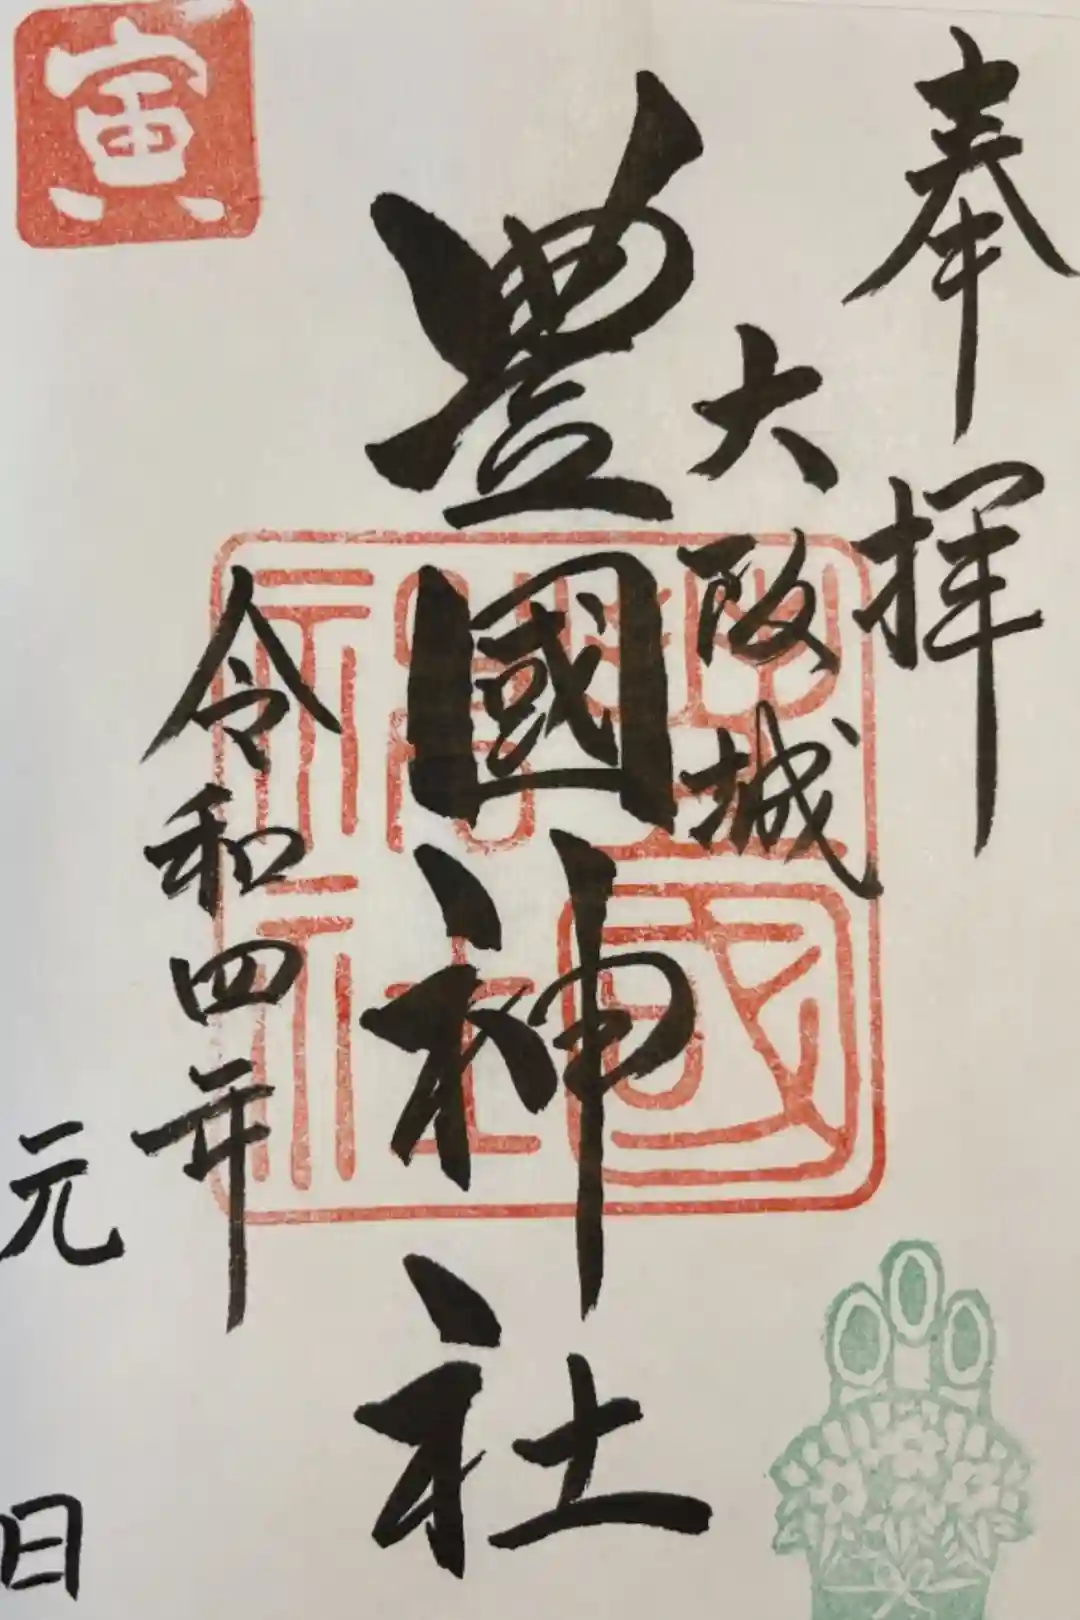 奉拝
大阪城
豊國神社
令和四年
元日
寅
豊國神社